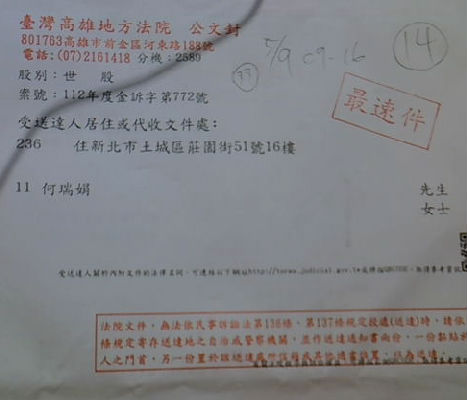 臺灣高雄地方法院 公文封
801763高雄市前金區河東路188號
電話:(07)2161418 分機:2589
7/9 09-16
14
33
股別:世 股
案號:112年度金訴字第772號
最速件
受送達人居住或代收文件處:
236 住新北市土城區莊園街51號16樓
11 何瑞娟
先生
女士
受送達人對於內附文件的法律名詞,可連結以下網
法院文件,為法依民事訴訟法第136條、第137條規定投遞(送達)時,請依
條規定寄存送達地之自治或警察機關,並作送達通知書兩份,一份黏貼於
人之門首,另一份置於